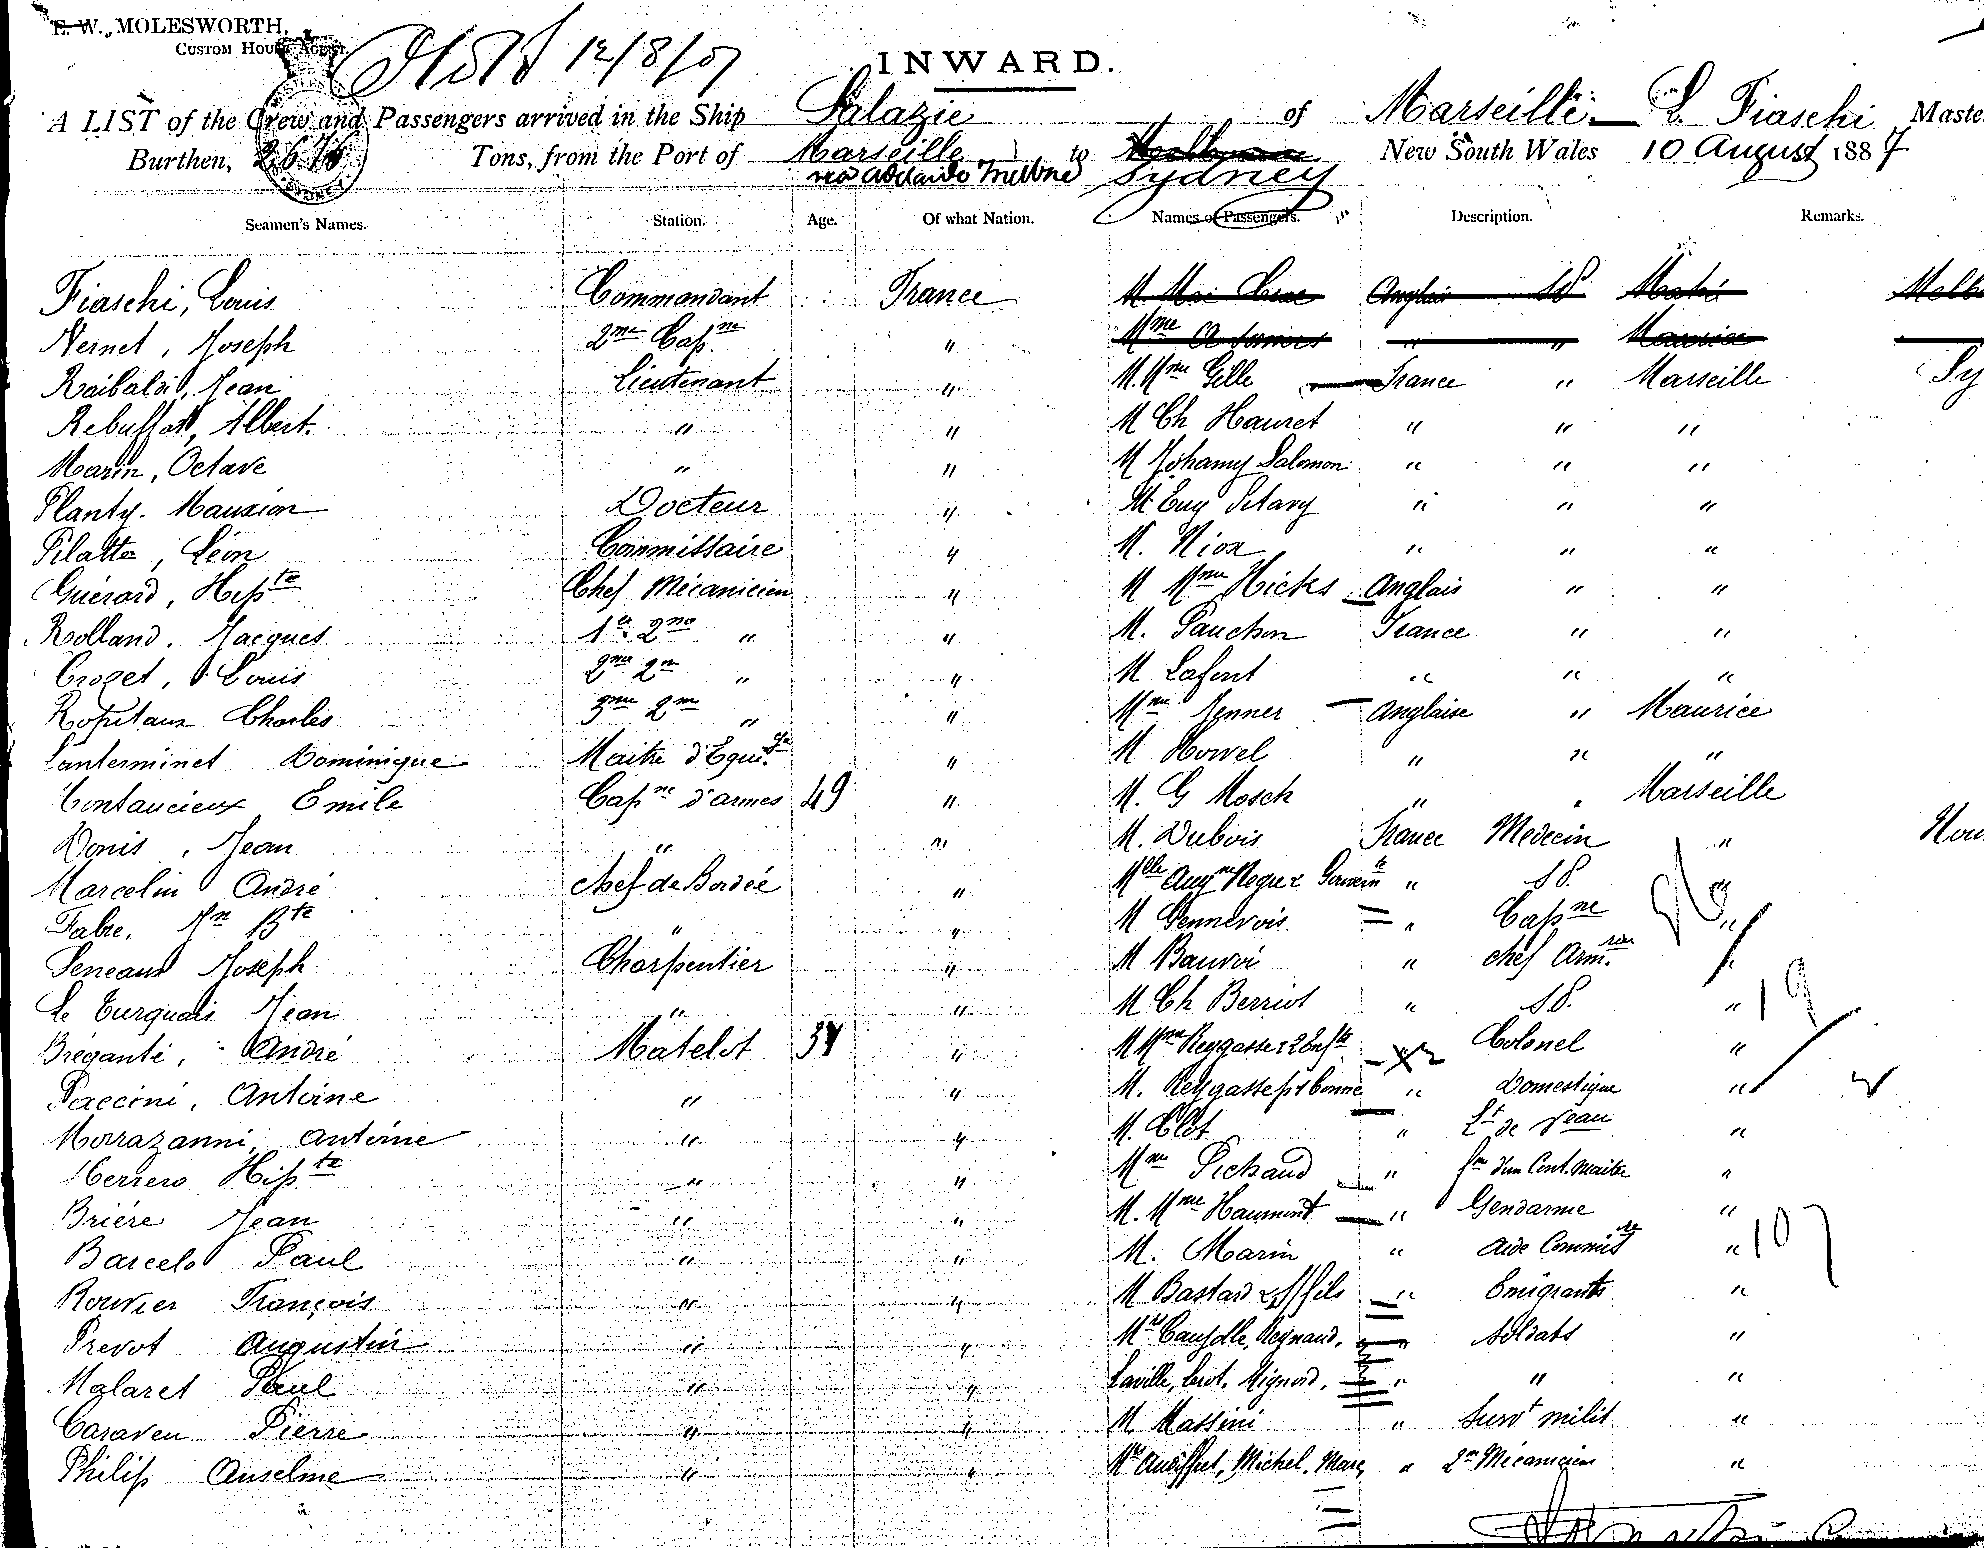 E. W. MOLESWORTH,
CUSTOM HOUSE AGENT.
12/8/87
INWARD.
A LIST of the Crew and Passengers arrived in the Ship Salazie of Marseille L. Fiaschi Maste
Burthen, Tons, from the Port of Marseille via Adelaide Melbne to Sydney New South Wales 10 August 1887
Seamen's Names. Station. Age. Of what Nation. Names of Passengers. Description. Remarks.
Fiaschi, Louis Commandant France M. Anglais Melb
Vernet, Joseph 2me Capne " Mme " " Maurice
Raibaldi, Jean Lieutenant " M. Mme Gelle France " Marseille Sy
Rebuffat, Albert. " " M Ch Hauret " " "
Marin, Octave " " M Johamy Salomon " " "
Planty. Mauxion Docteur " M Eug " " "
Pilatte, Léon Commissaire " M. Niox " " "
Guérard, Hipte Chef Mécanicien " M Mme Hicks Anglais " "
Rolland. Jacques 1er 2me " " M. Pauchon France " "
Crozet, Louis 2me 2m " " M Lafont " " "
Charles 3me 2m " " Mme Jenner Anglaise " Maurice
Santerminet Dominique Maitre d'Equi. " M " " "
Contaucieux Emile Capne d'armes 49 " M. G Mosck " " Marseille
Donis, Jean " " M. Dubois France Medecin " Nou
Marcelin André chef de Bordée " Mlle " S.P. "
Fabre, Jn Bte " " M Gennevois " Capne "
Seneaux Joseph Charpentier " M " chef Arm. "
Le Turquais Jean " " M Ch Berriot " S.P. " 19
Bréganti, André Matelot 34 " M Mme Reygasse & 2 Enfts Colonel "
Paccini, Antoine " " M. Reygasse fs & bonne " Domestique "
Morrazanni, Antoine " " M. Clot " Lt de Veau "
Herrero Hipte " " Mme Pichaud " fme d'un Cont. maitre "
Brière Jean " " M. Mme Haumont " Gendarme "
Barcelo Paul " " M. Marin " Aide Commisre " 107
Rouvier François " " M Bastard & fils " Emigrants "
Prevot Augustin " " Mrs Reynaud, " Soldats "
Malaret Paul " " Laville, Mignard. " " "
Caraven Pierre " " M Massini " Survt milit "
Philip Anselme " " Mrs Michel. Marc " 2m Mécanicien "